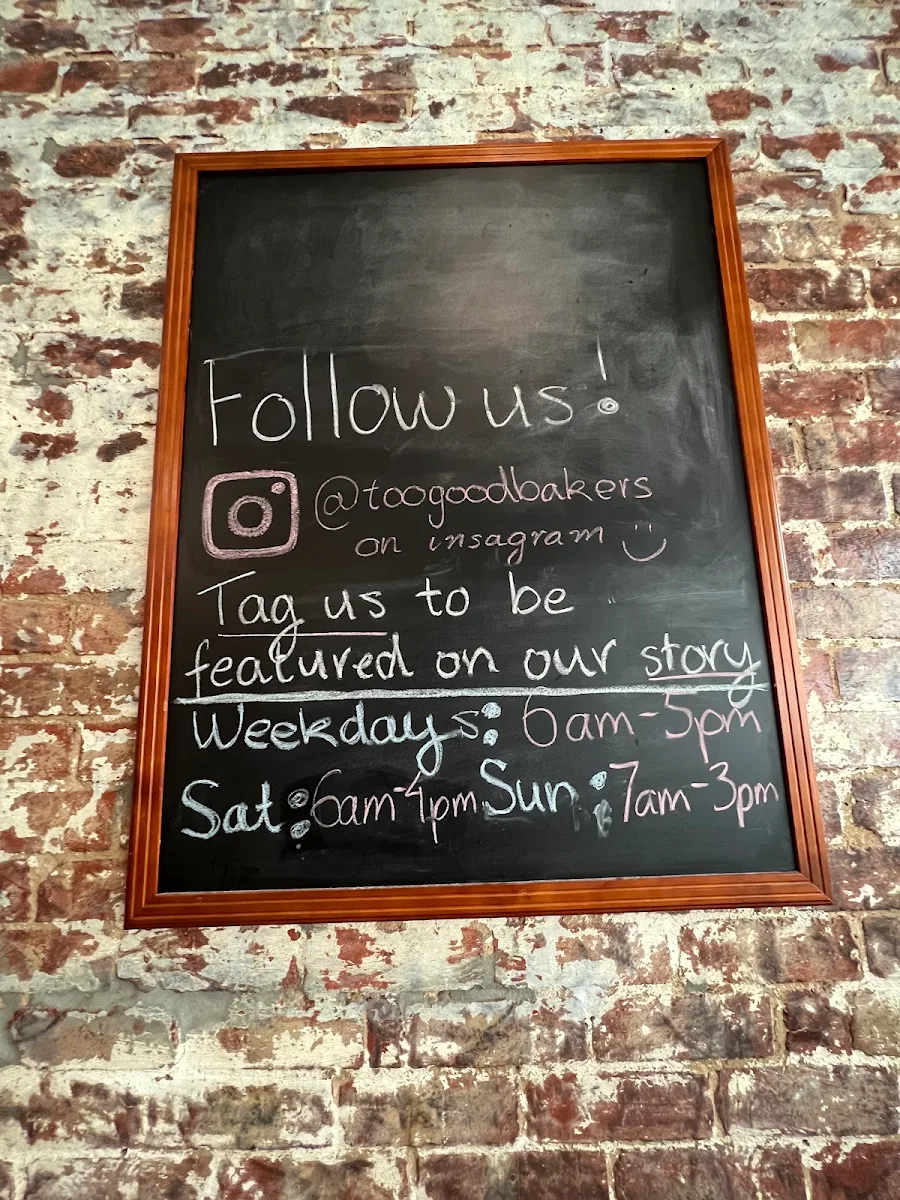 Follow us!
@toogoodbakers
on insagram
Tag us to be
featured on our story
Weekdays: 6am-5pm
Sat: 6am-4pm Sun: 7am-3pm